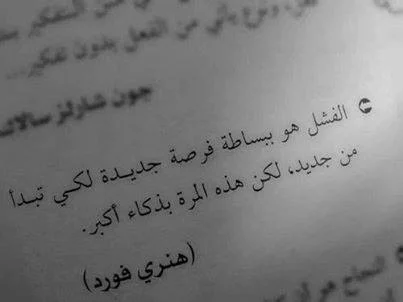 ونوع يأتي من الفعل بدون تفكير...
جون شارلز سالاك
الفشل هو ببساطة فرصة جديدة لكي تبدأ
من جديد، لكن هذه المرة بذكاء أكبر.
(هنري فورد)
النجاح هو أن